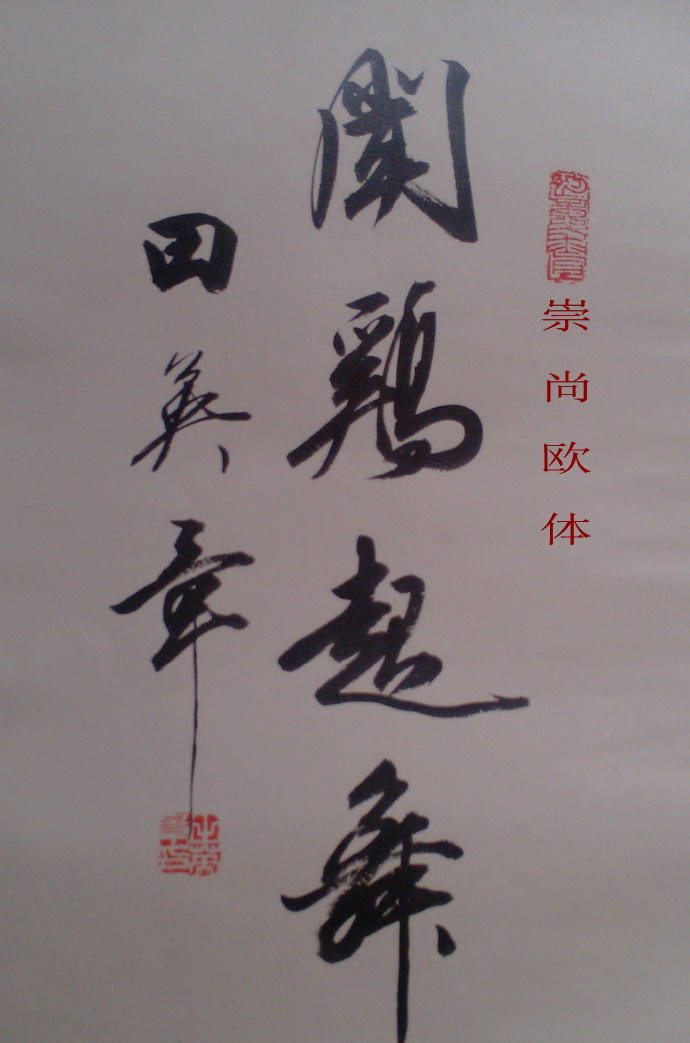 崇尚欧体
聞鷄起舞
田英章